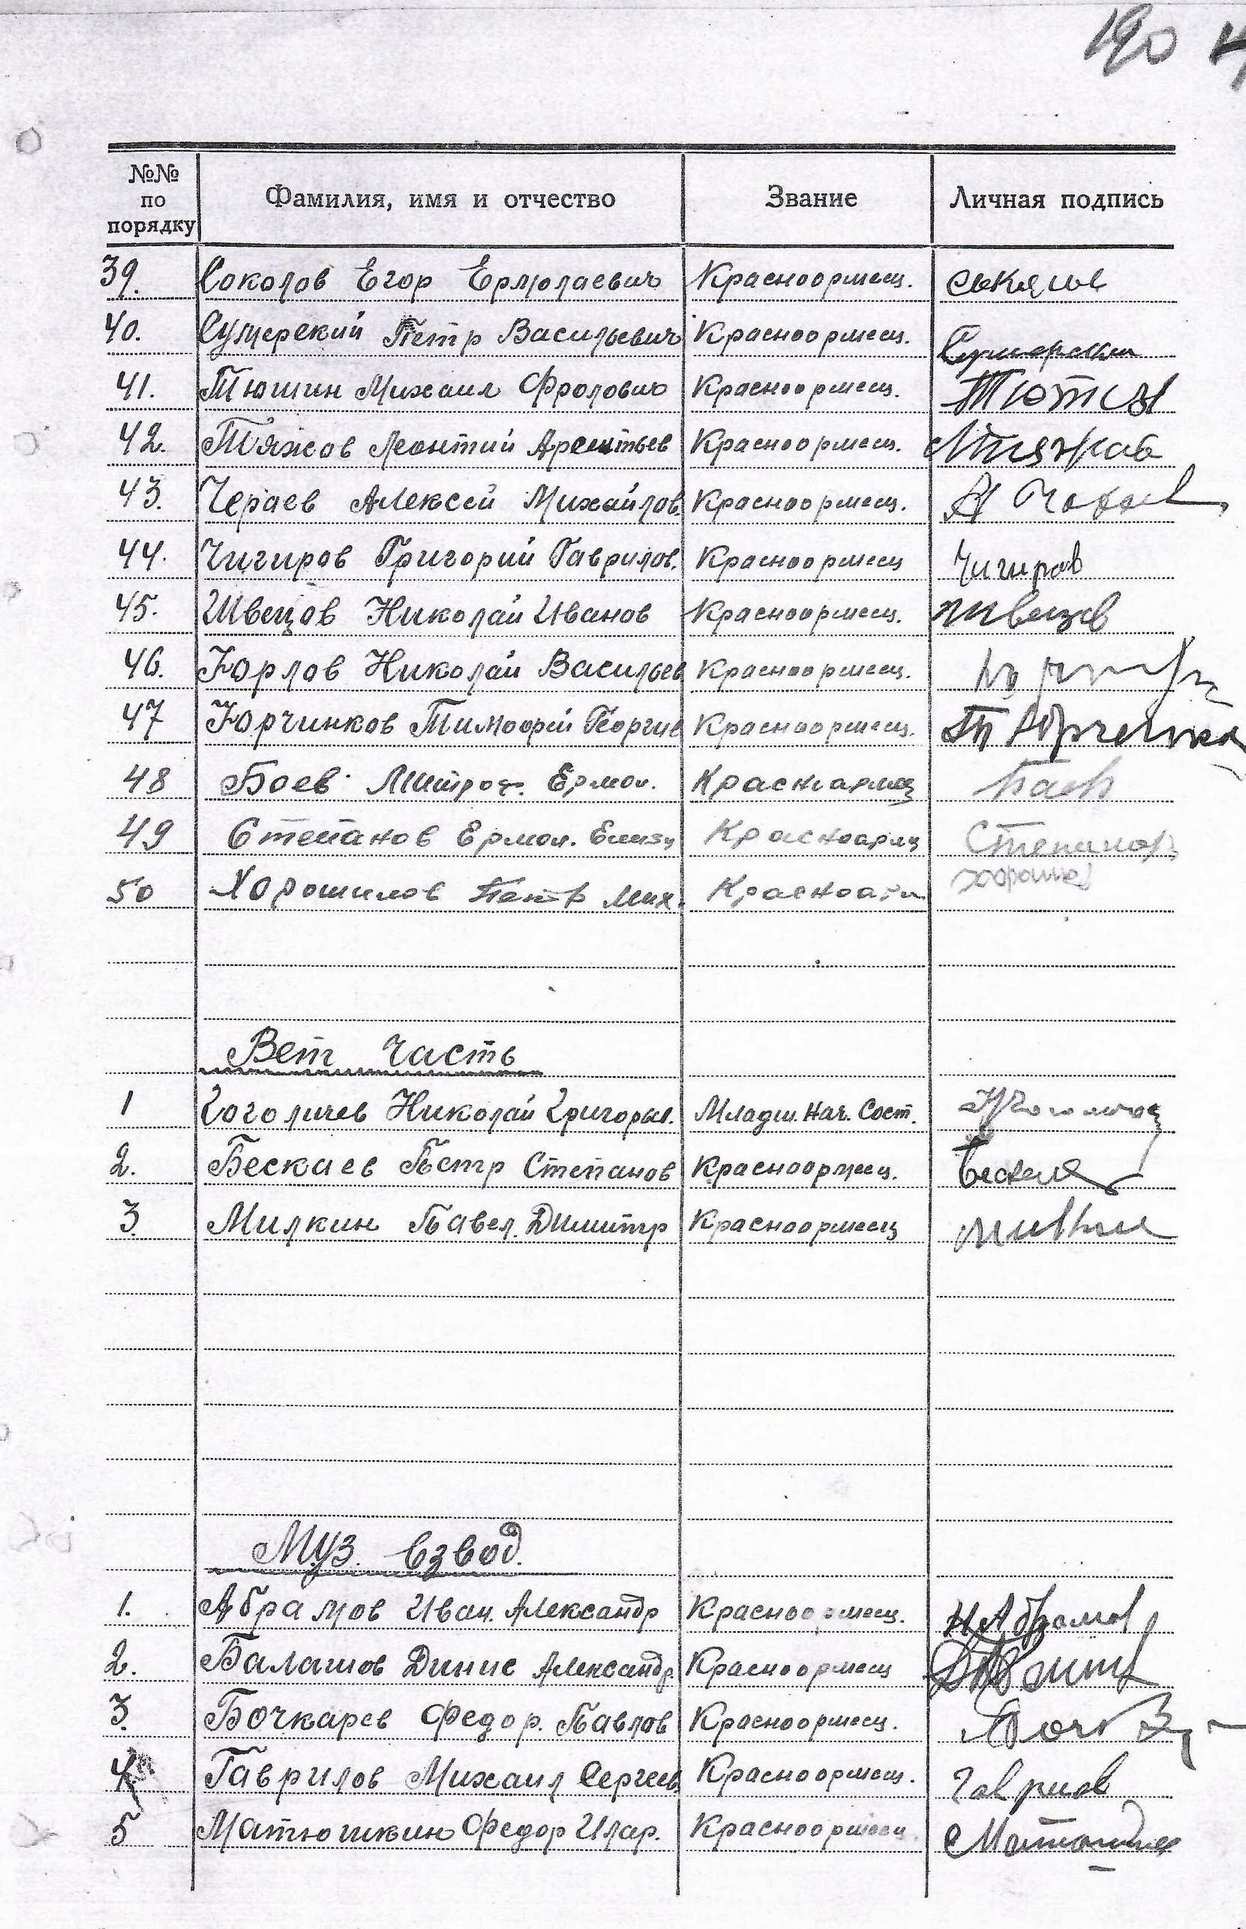 190 4
№№ по порядку Фамилия, имя и отчество Звание Личная подпись
39. Соколов Егор Ермолаевич Красноармеец.
40. Сумерский Петр Васильевич Красноармеец. Сумерский
41. Тюшин Михаил Фролович Красноармеец. Тютин
42. Тяжов Леонтий Арентьев Красноармеец. Тяжов
43. Чераев Алексей Михайлов. Красноармеец. А
44. Чигиров Григорий Гаврилов. Красноармеец Чигиров
45. Швецов Николай Иванов Красноармеец. швецов
46. Юрлов Николай Васильев Красноармеец.
47 Юрчинков Тимофей Георгие Красноармеец. Т Юрченко
48 Боев Митроф. Ермол. Красноармец Баев
49 Степанов Ермол. Красноармц Степанов
50 Хорошилов Петр Мих. Красноарм хорошил
Вет часть
1 Гоголичев Николай Григорьев. Младш. Нач. Сост.
2. Бескаев Петр Степанов Красноармеец. Бескае
3. Милкин Павел. Димитр Красноармеец милкин
Муз. взвод.
1. Абрамов Иван. Александр Красноармеец. И Абрамов
2. Балашов Динис Александр. Красноармеец
3. Бочкарев Федор. Павлов Красноармеец.
4 Гаврилов Михаил Сергеев. Красноармеец. Гаврилов
5 Матюшкин Федор Илар. Красноармеец. Матюшкин